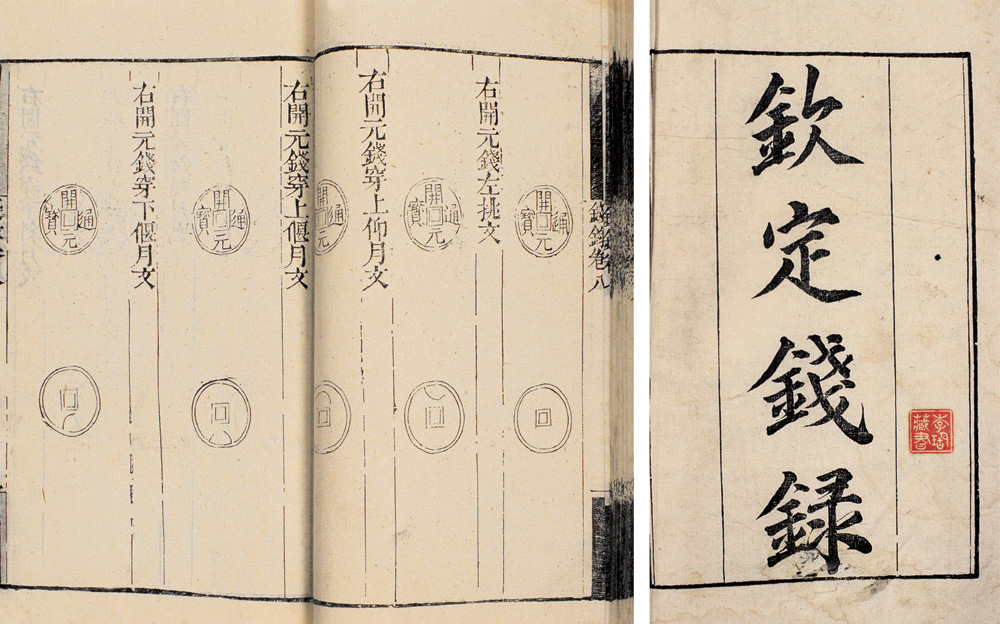 欽定錢録
藏書
錢錄卷八
開元通寶
右開元錢左挑文
開元通寶
右開元錢穿上仰月文
開元通
右開元錢穿上偃月文
開元通寶
右開元錢穿下偃月文
開元通寶